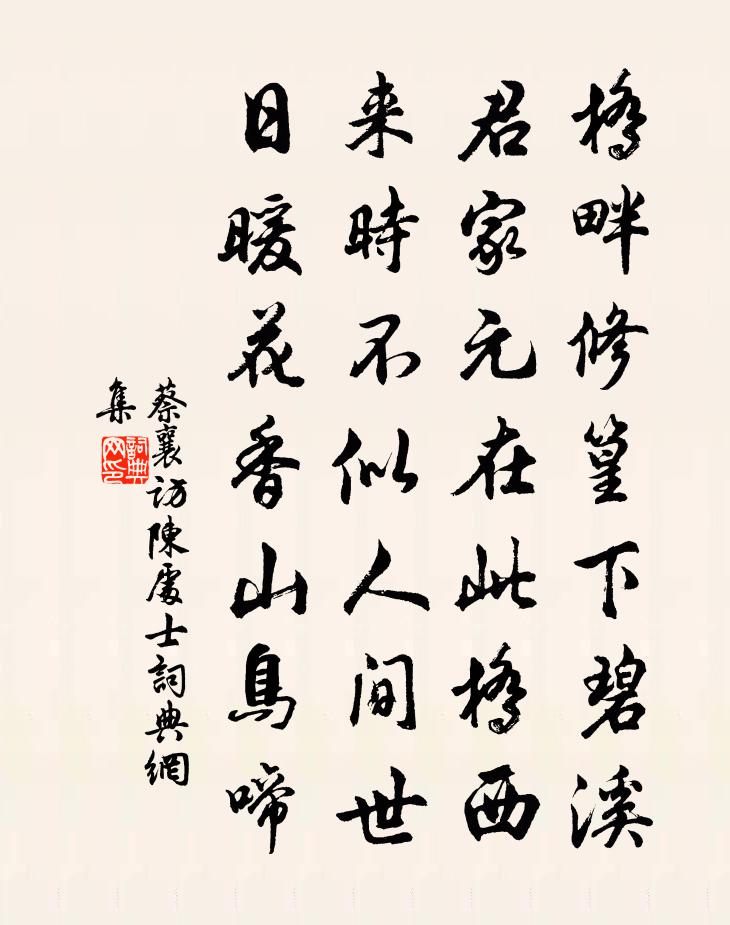 橋畔修篁下碧溪
君家元在此橋西
来時不似人間世
日暖花香山鳥啼
蔡襄訪陳處士詞典網
集
詞典網印